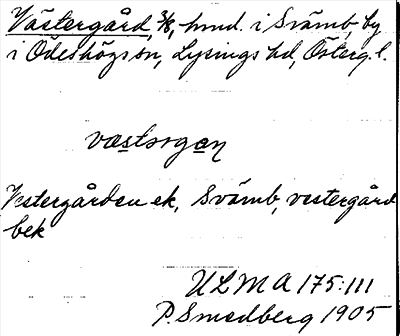 Västergård, 3/8, hmd. i Svämb, by
i Ödeshögs sn, Lysings hd, Österg. l.
væstərgɑn
Vestergården ek, Svämb, vestergård
bek
ULMA 175:111
P. Smedberg 1905